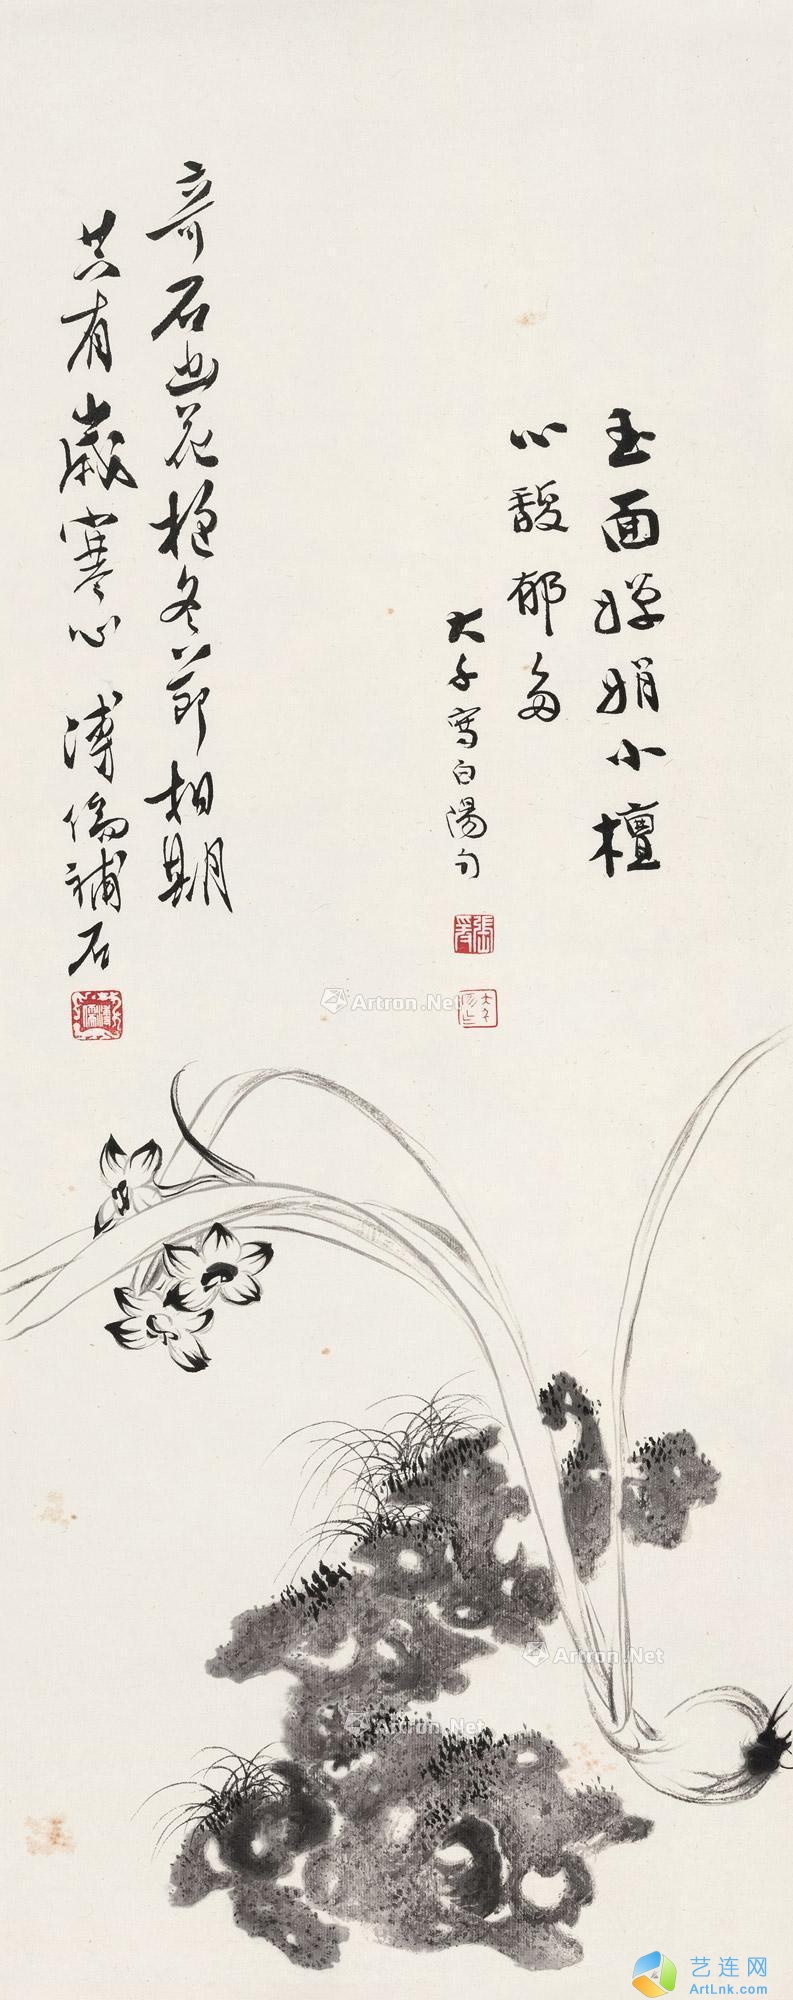 玉面嬋娟小檀
心馥郁多
大千寫白陽句
張爰
大千
奇石幽花抱冬節相期
共有歲寒心 溥儒補石
溥儒
Artron.Net
Artron.Net
Artron.Net
艺连网
ArtLnk.com